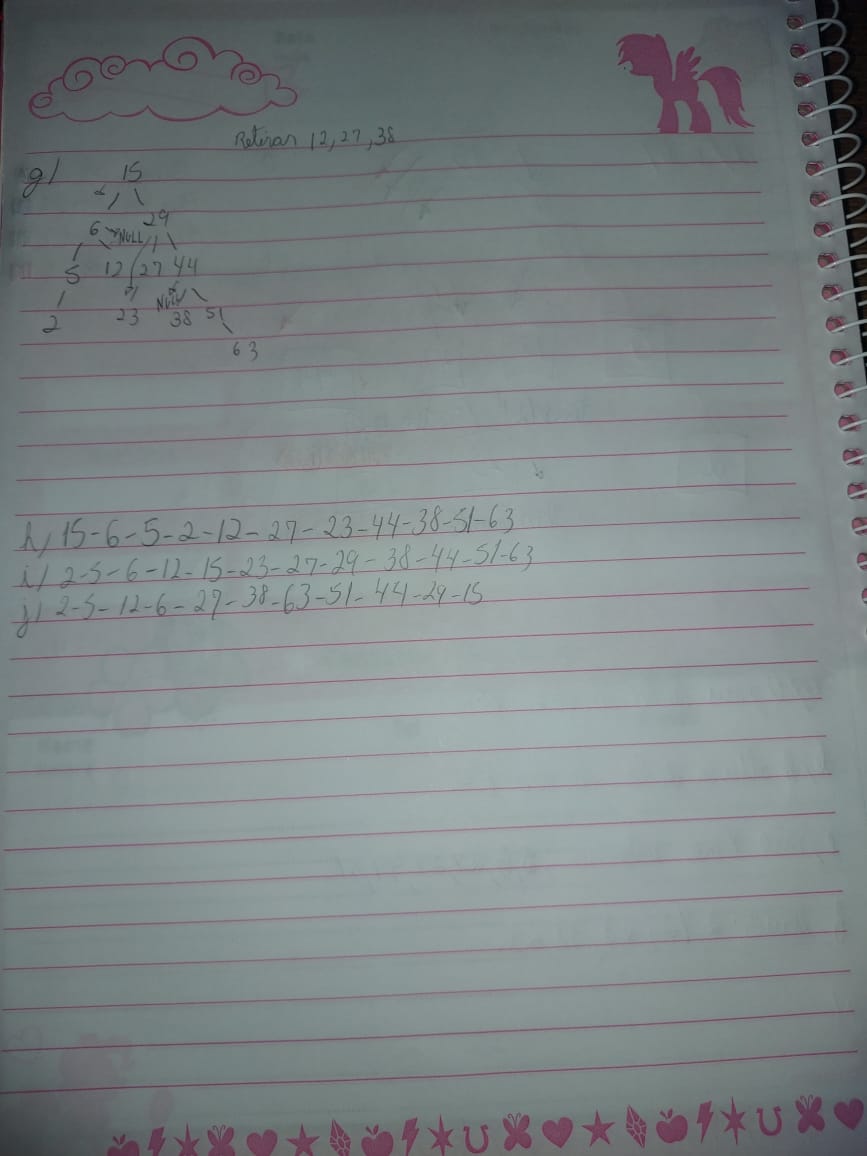 Retirar 12, 27, 38
g) 15
6 NULL 29
5 12 27 44
2 23 NULL 38 51
63
h) 15-6-5-2-12-27-23-44-38-51-63
i) 2-5-6-12-15-23-27-29-38-44-51-63
j) 2-5-12-6-27-38-63-51-44-29-15